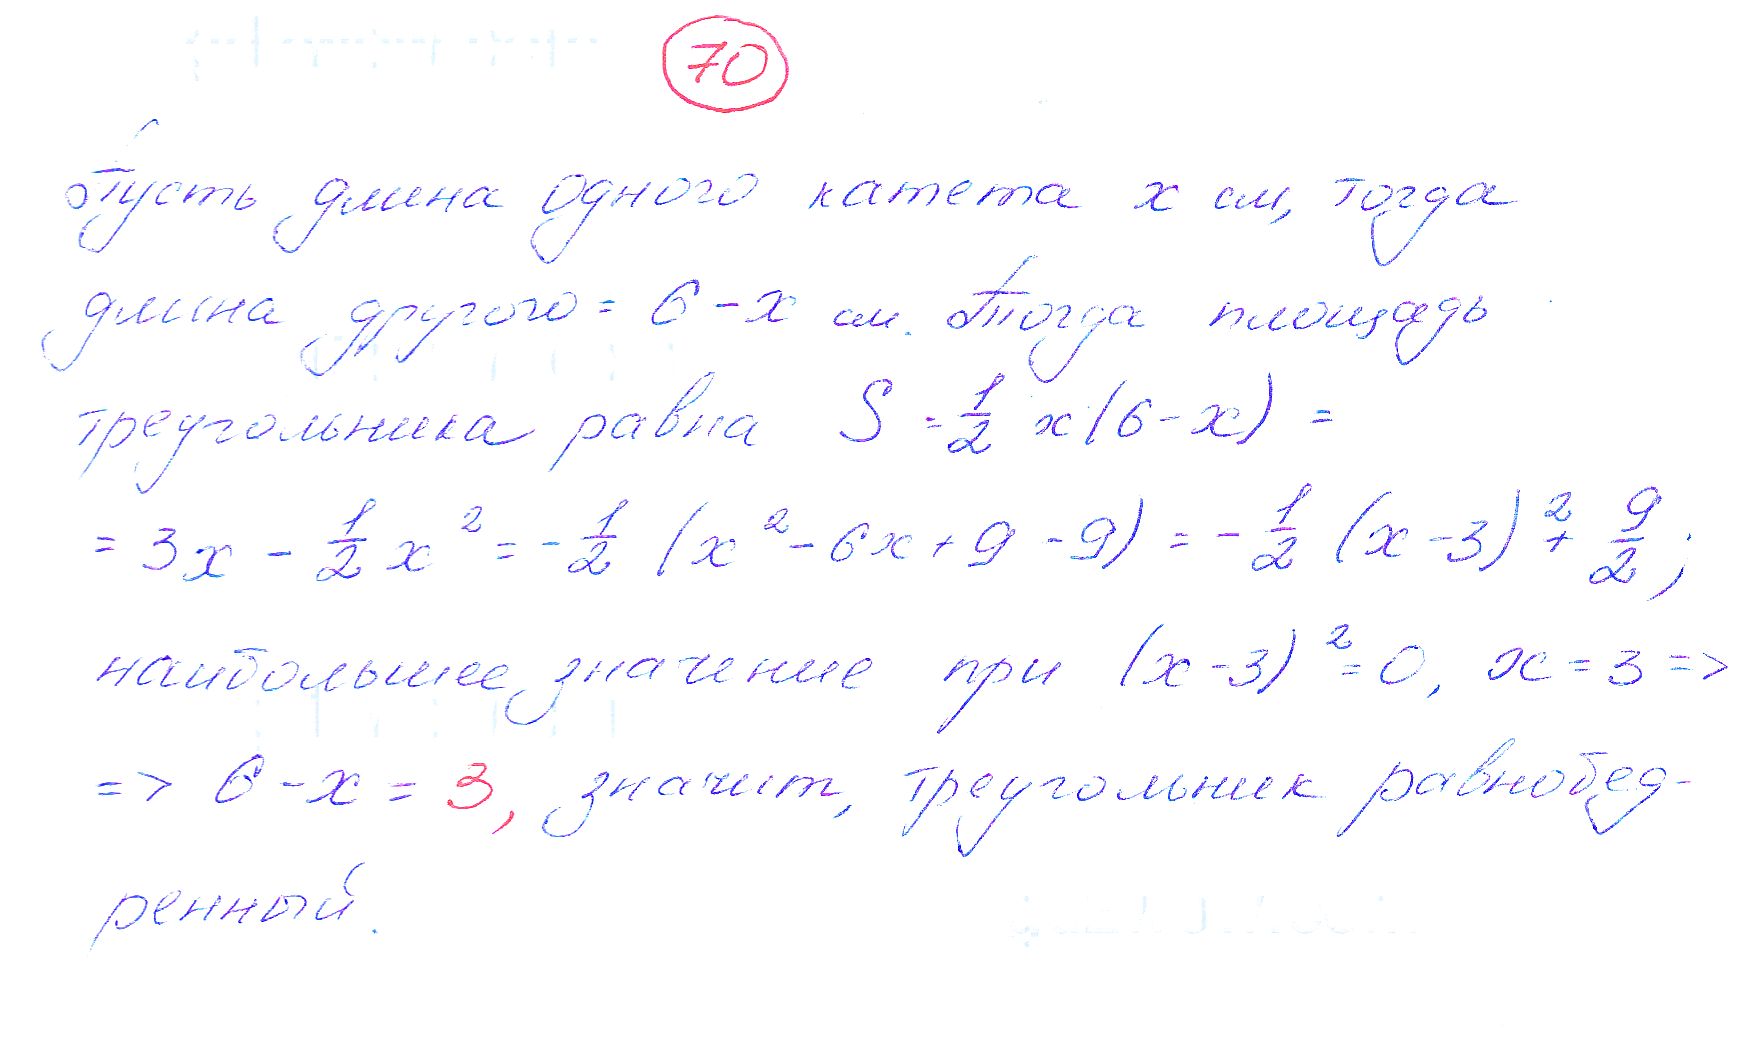 70
Пусть длина одного катета x см, тогда
длина другого = 6 - x см. Тогда площадь
треугольника равна S = 1/2 x(6 - x) =
= 3x - 1/2 x² = -1/2 (x² - 6x + 9 - 9) = -1/2 (x - 3)² + 9/2;
наибольшее значение при (x - 3)² = 0, x = 3 =>
=> 6 - x = 3, значит, треугольник равнобед-
ренный.